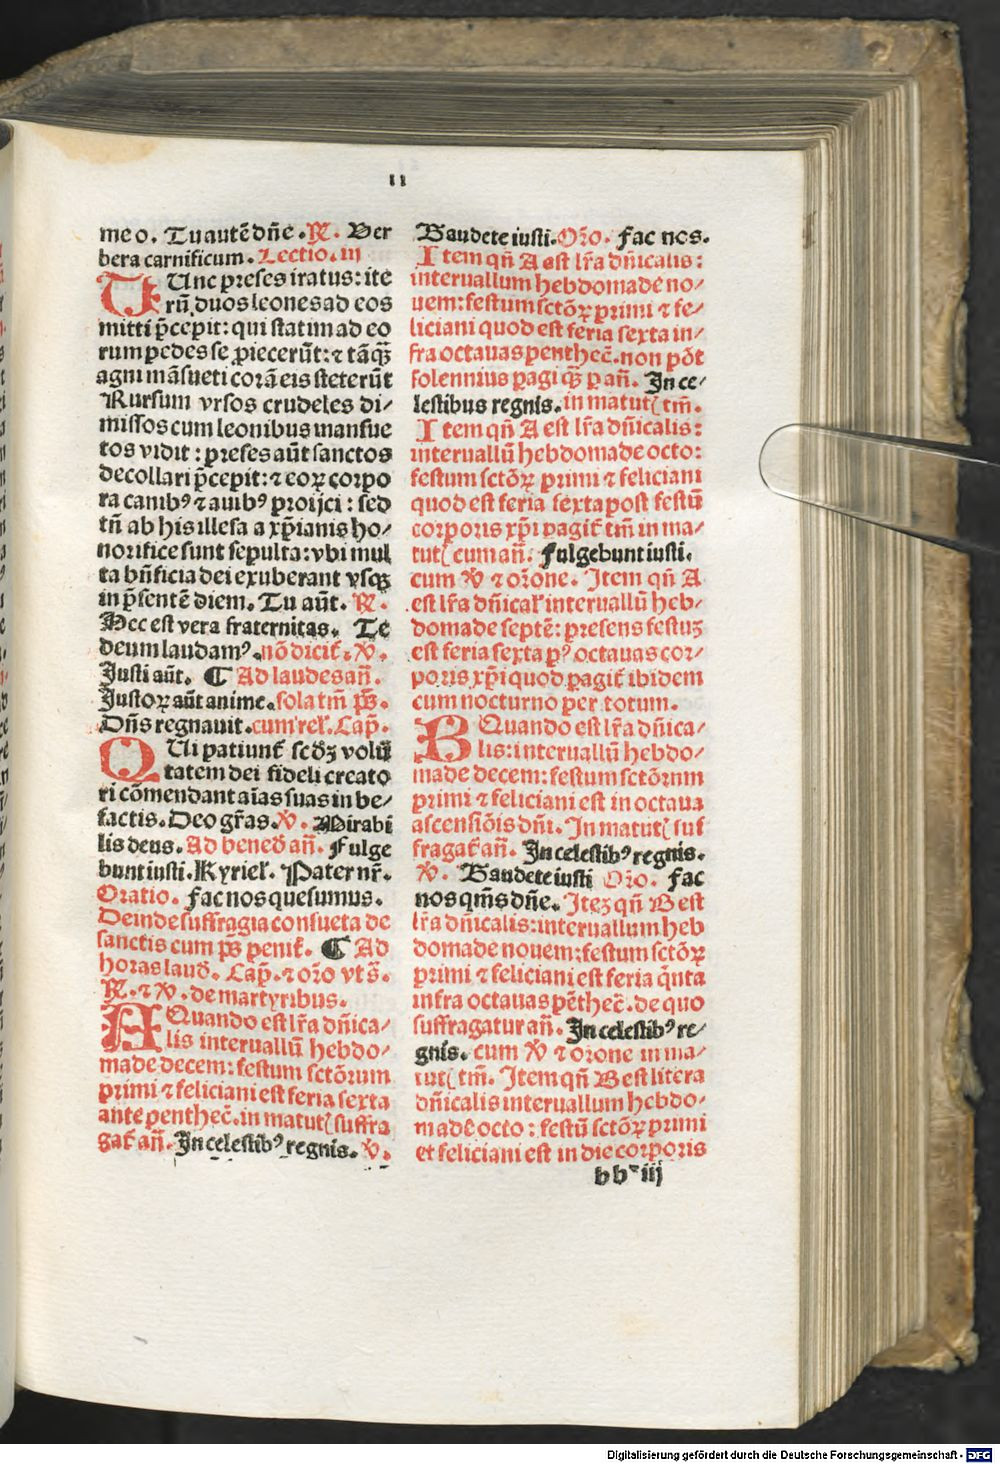 11
meo. Tu autē dñe. ℟. Ver
bera carnificum. Lectio. iij
TUnc preses iratus: ite
rū duos leones ad eos
mitti p̄cepit: qui statim ad eo
rum pedes se ꝓiecerūt: ⁊ tāꝙ̄
agni māsueti corā eis steterūt
Rursum vrsos crudeles di⸗
missos cum leonibus mansue
tos vidit: preses aūt sanctos
decollari p̄cepit: ⁊ eoꝝ corpo
ra canibꝰ ⁊ auibꝰ proijci: sed
tñ ab his illesa a xp̄ianis ho⸗
norifice sunt sepulta: vbi mul
ta bñficia dei exuberant vsqꝫ
in p̄sentē diem. Tu aūt. ℟.
Hec est vera fraternitas. Te
deum laudamꝰ. nō dicit̄. ℣.
Justi aūt. ¶ Ad laudes añ.
Justoꝝ aūt anime. sola tm̄ pͫs.
Dñs regnauit. cum rel̄. Cap̄.
QUi patiunt̄ scd̄ꝫ volū
tatem dei fideli creato
ri cōmendant aīas suas in be⸗
factis. Deo gr̄as. ℣. Mirabi
lis deus. Ad bened̄ añ. Fulge
bunt iusti. Kyriel̄. Pater nr̄.
Oratio. Fac nos quesumus.
Deinde suffragia consueta de
sanctis cum pͫs penit̄. ¶ Ad
horas laud̄. Cap̄. ⁊ or̄o vt s̄.
℟. ⁊ ℣. de martyribus.
A Quando est lr̄a dñica⸗
lis interuallū hebdo⸗
made decem: festum sctōrum
primi ⁊ feliciani est feria sexta
ante penthec̄. in matutꝭ suffra
gat̄ añ. In celestibꝰ regnis. ℣.
Gaudete iusti. Or̄o. Fac nos.
Item qñ A est lr̄a dñicalis:
interuallum hebdomade no⸗
uem: festum sctōꝝ primi ⁊ fe⸗
liciani quod est feria sexta in⸗
fra octauas penthec̄. non pōt
solennius ꝑagi ꝙ̄ ꝑ añ. In ce⸗
lestibus regnis. in matutꝭ tm̄.
Item qñ A est lr̄a dñicalis:
interuallū hebdomade octo:
festum sctōꝝ primi ⁊ feliciani
quod est feria sexta post festū
corporis xp̄i ꝑagit̄ tm̄ in ma⸗
tutꝭ cum añ. Fulgebunt iusti.
cum ℣ ⁊ or̄one. Item qñ A
est lr̄a dñical̄ interuallū heb⸗
domade septē: presens festuꝫ
est feria sexta pꝰ octauas cor⸗
poris xp̄i quod ꝑagit̄ ibidem
cum nocturno per totum.
B Quando est lr̄a dñica⸗
lis: interuallū hebdo⸗
made decem: festum sctōrum
primi ⁊ feliciani est in octaua
ascensiōis dñi. In matutꝭ suf
fragat̄ añ. In celestibꝰ regnis.
℣. Gaudete iusti Or̄o. Fac
nos qm̄s dñe. Iteꝫ qñ B est
lr̄a dñicalis: interuallum heb
domade nouem: festum sctōꝝ
primi ⁊ feliciani est feria q̄nta
infra octauas pēthec̄. de quo
suffragatur añ. In celestibꝰ re⸗
gnis. cum ℣ ⁊ or̄one in ma⸗
tutꝭ tm̄. Item qñ B est litera
dñicalis interuallum hebdo⸗
made octo: festū sctōꝝ primi
et feliciani est in die corporis
bb iij
Digitalisierung gefördert durch die Deutsche Forschungsgemeinschaft - DFG